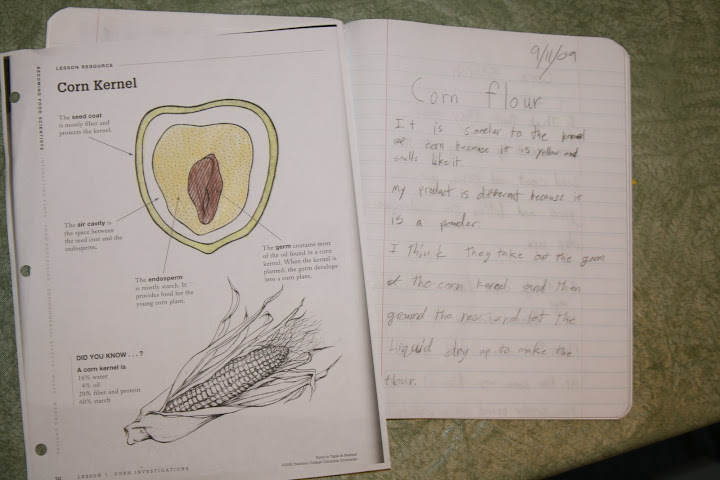 BECOMING FOOD SCIENTISTS
LESSON RESOURCE
Corn Kernel
The seed coat
is mostly fiber and
protects the kernel.
The air cavity is
the space between
the seed coat and the
endosperm.
The endosperm
is mostly starch. It
provides food for the
young corn plant.
The germ contains most
of the oil found in a corn
kernel. When the kernel is
planted, the germ develops
into a corn plant.
DID YOU KNOW . . . ?
A corn kernel is
16% water
4% oil
20% fiber and protein
60% starch
LESSON 7 CORN INVESTIGATIONS
9/11/09
Corn flour
It is smeler to the kernel
corn because it is yellow and
smells like it.
My product is different because it
is a powder
I think they take out the germ
of the corn kernel and then
ground the rest and let the
Liquid dry up to make the
flour.